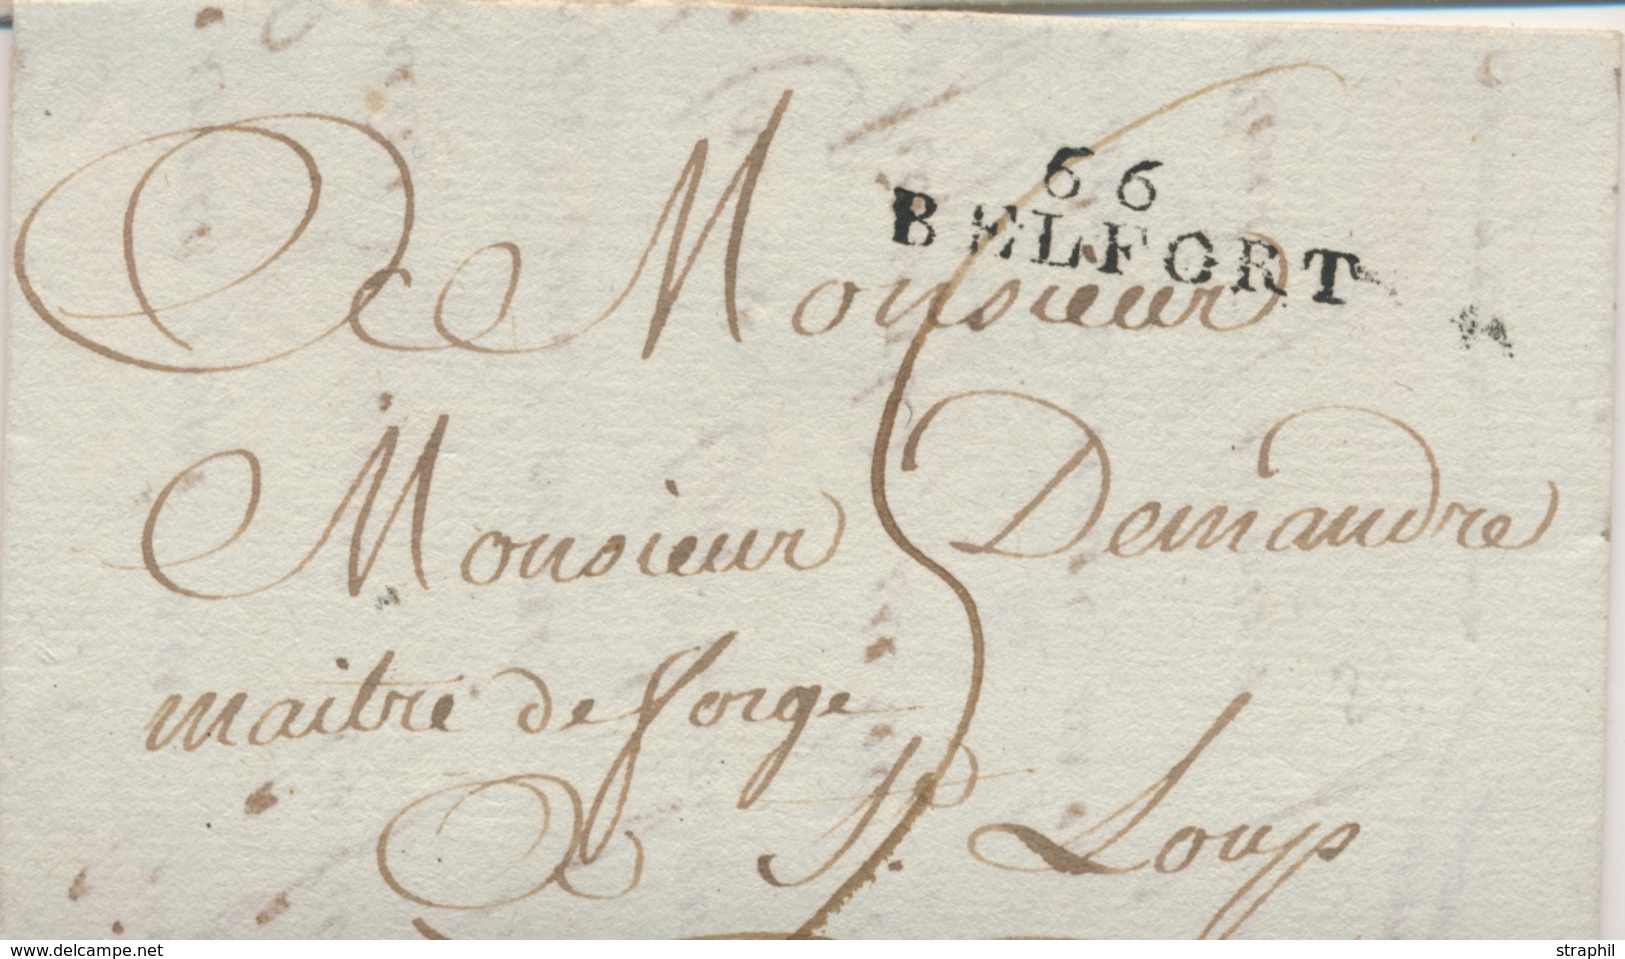 66
BELFORT
A Monsieur
Monsieur Demandre
maitre de forge
A St Loup
www.delcampe.net
straphil